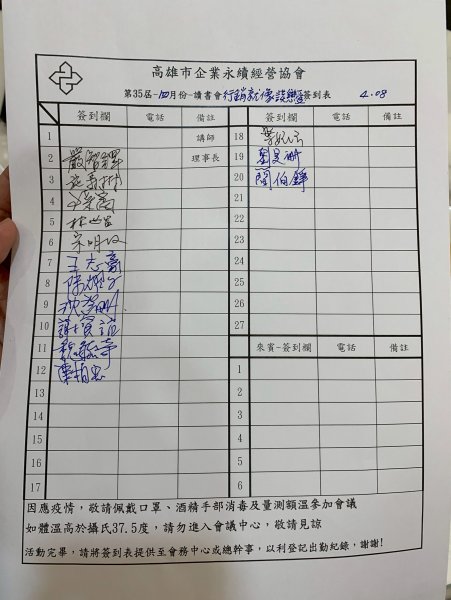 高雄市企業永續經營協會
第35屆-四月份-讀書會行銷就像談戀愛簽到表 4.08
簽到欄 電話 備註
1 講師
2 理事長
3
4
5
6 宋明
7 王志豪
8
9
10
11
12
13
14
15
16
17
簽到欄 電話 備註
18
19
20 閻伯錚
21
22
23
24
25
26
27
來賓-簽到欄 電話 備註
1
2
3
4
5
6
因應疫情,敬請佩戴口罩、酒精手部消毒及量測額溫參加會議
如體溫高於攝氏37.5度,請勿進入會議中心,敬請見諒
活動完畢,請將簽到表提供至會務中心或總幹事,以利登記出勤紀錄,謝謝!